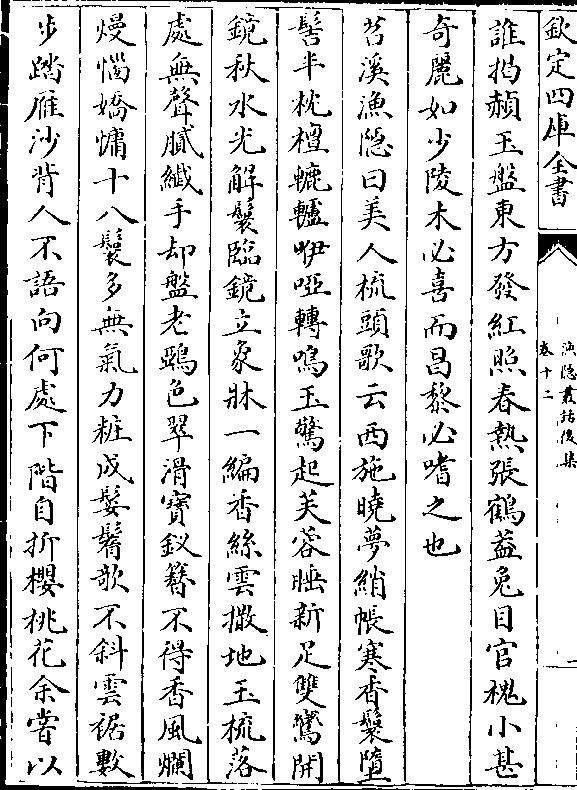 欽定四庫全書
漁隱叢話後集
卷十二
誰揭頳玉盤東方發紅照春熱張鶴葢兔目官槐小甚
奇麗如少陵未必喜而昌黎必嗜之也
苕溪漁隱曰美人梳頭歌云西施曉夢綃帳寒香鬟墮
髻半枕檀轆轤咿啞轉鳴玉驚起芙蓉睡新足雙鸞開
鏡秋水光解鬟臨鏡立象牀一編香絲雲撒地玉梳落
處無聲膩纖手却盤老鵶色翠滑寶釵簪不得香風爛
熳惱嬌慵十八鬟多無氣力粧成髮鬌欹不斜雲裾數
步踏雁沙背人不語向何處下階自折櫻桃花余嘗以